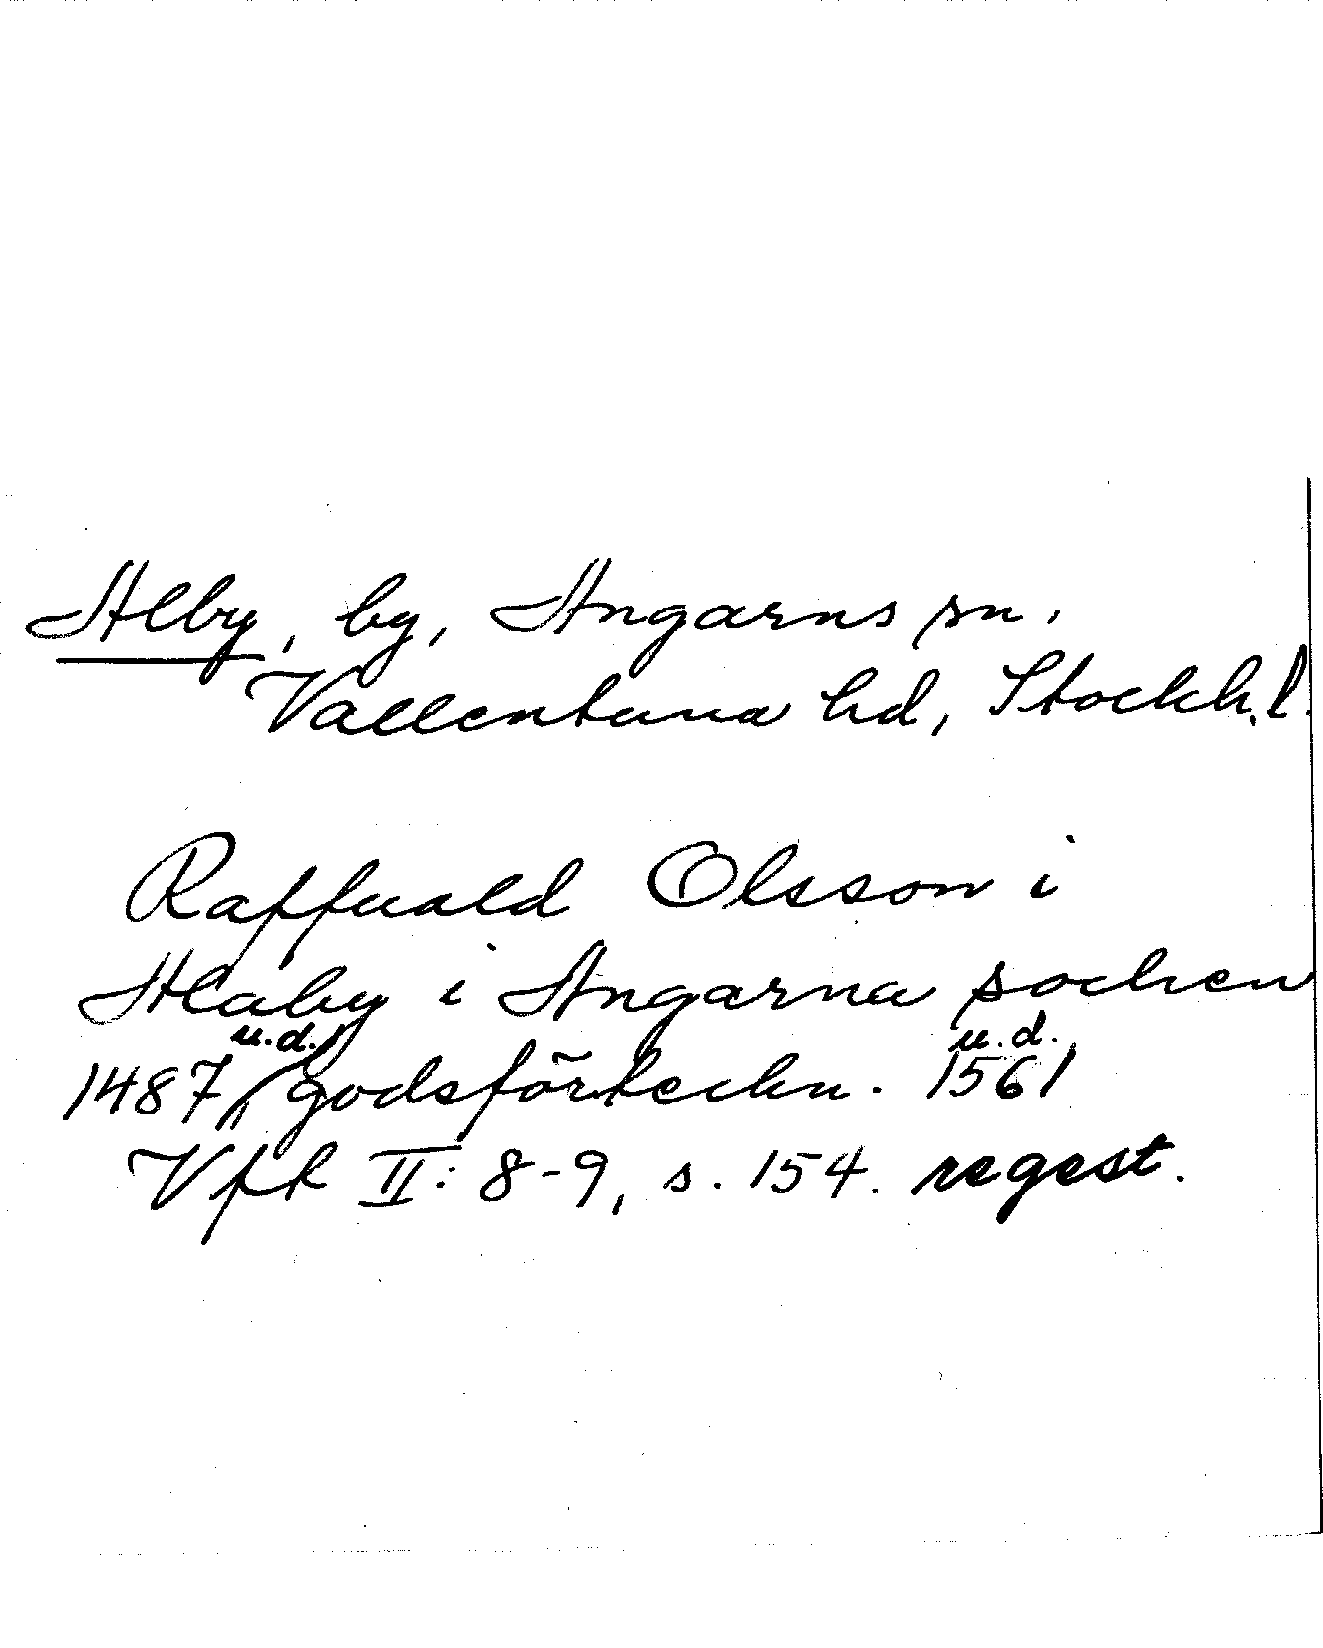 Alby, by, Angarns sn.
Vallentuna hd, Stockh. l.
Raffuald Olsson i
Alaby i Angarna sochen
1487 u.d. godsförteckn. 1561 u.d.
Vfk II: 8-9, s. 154. regest.